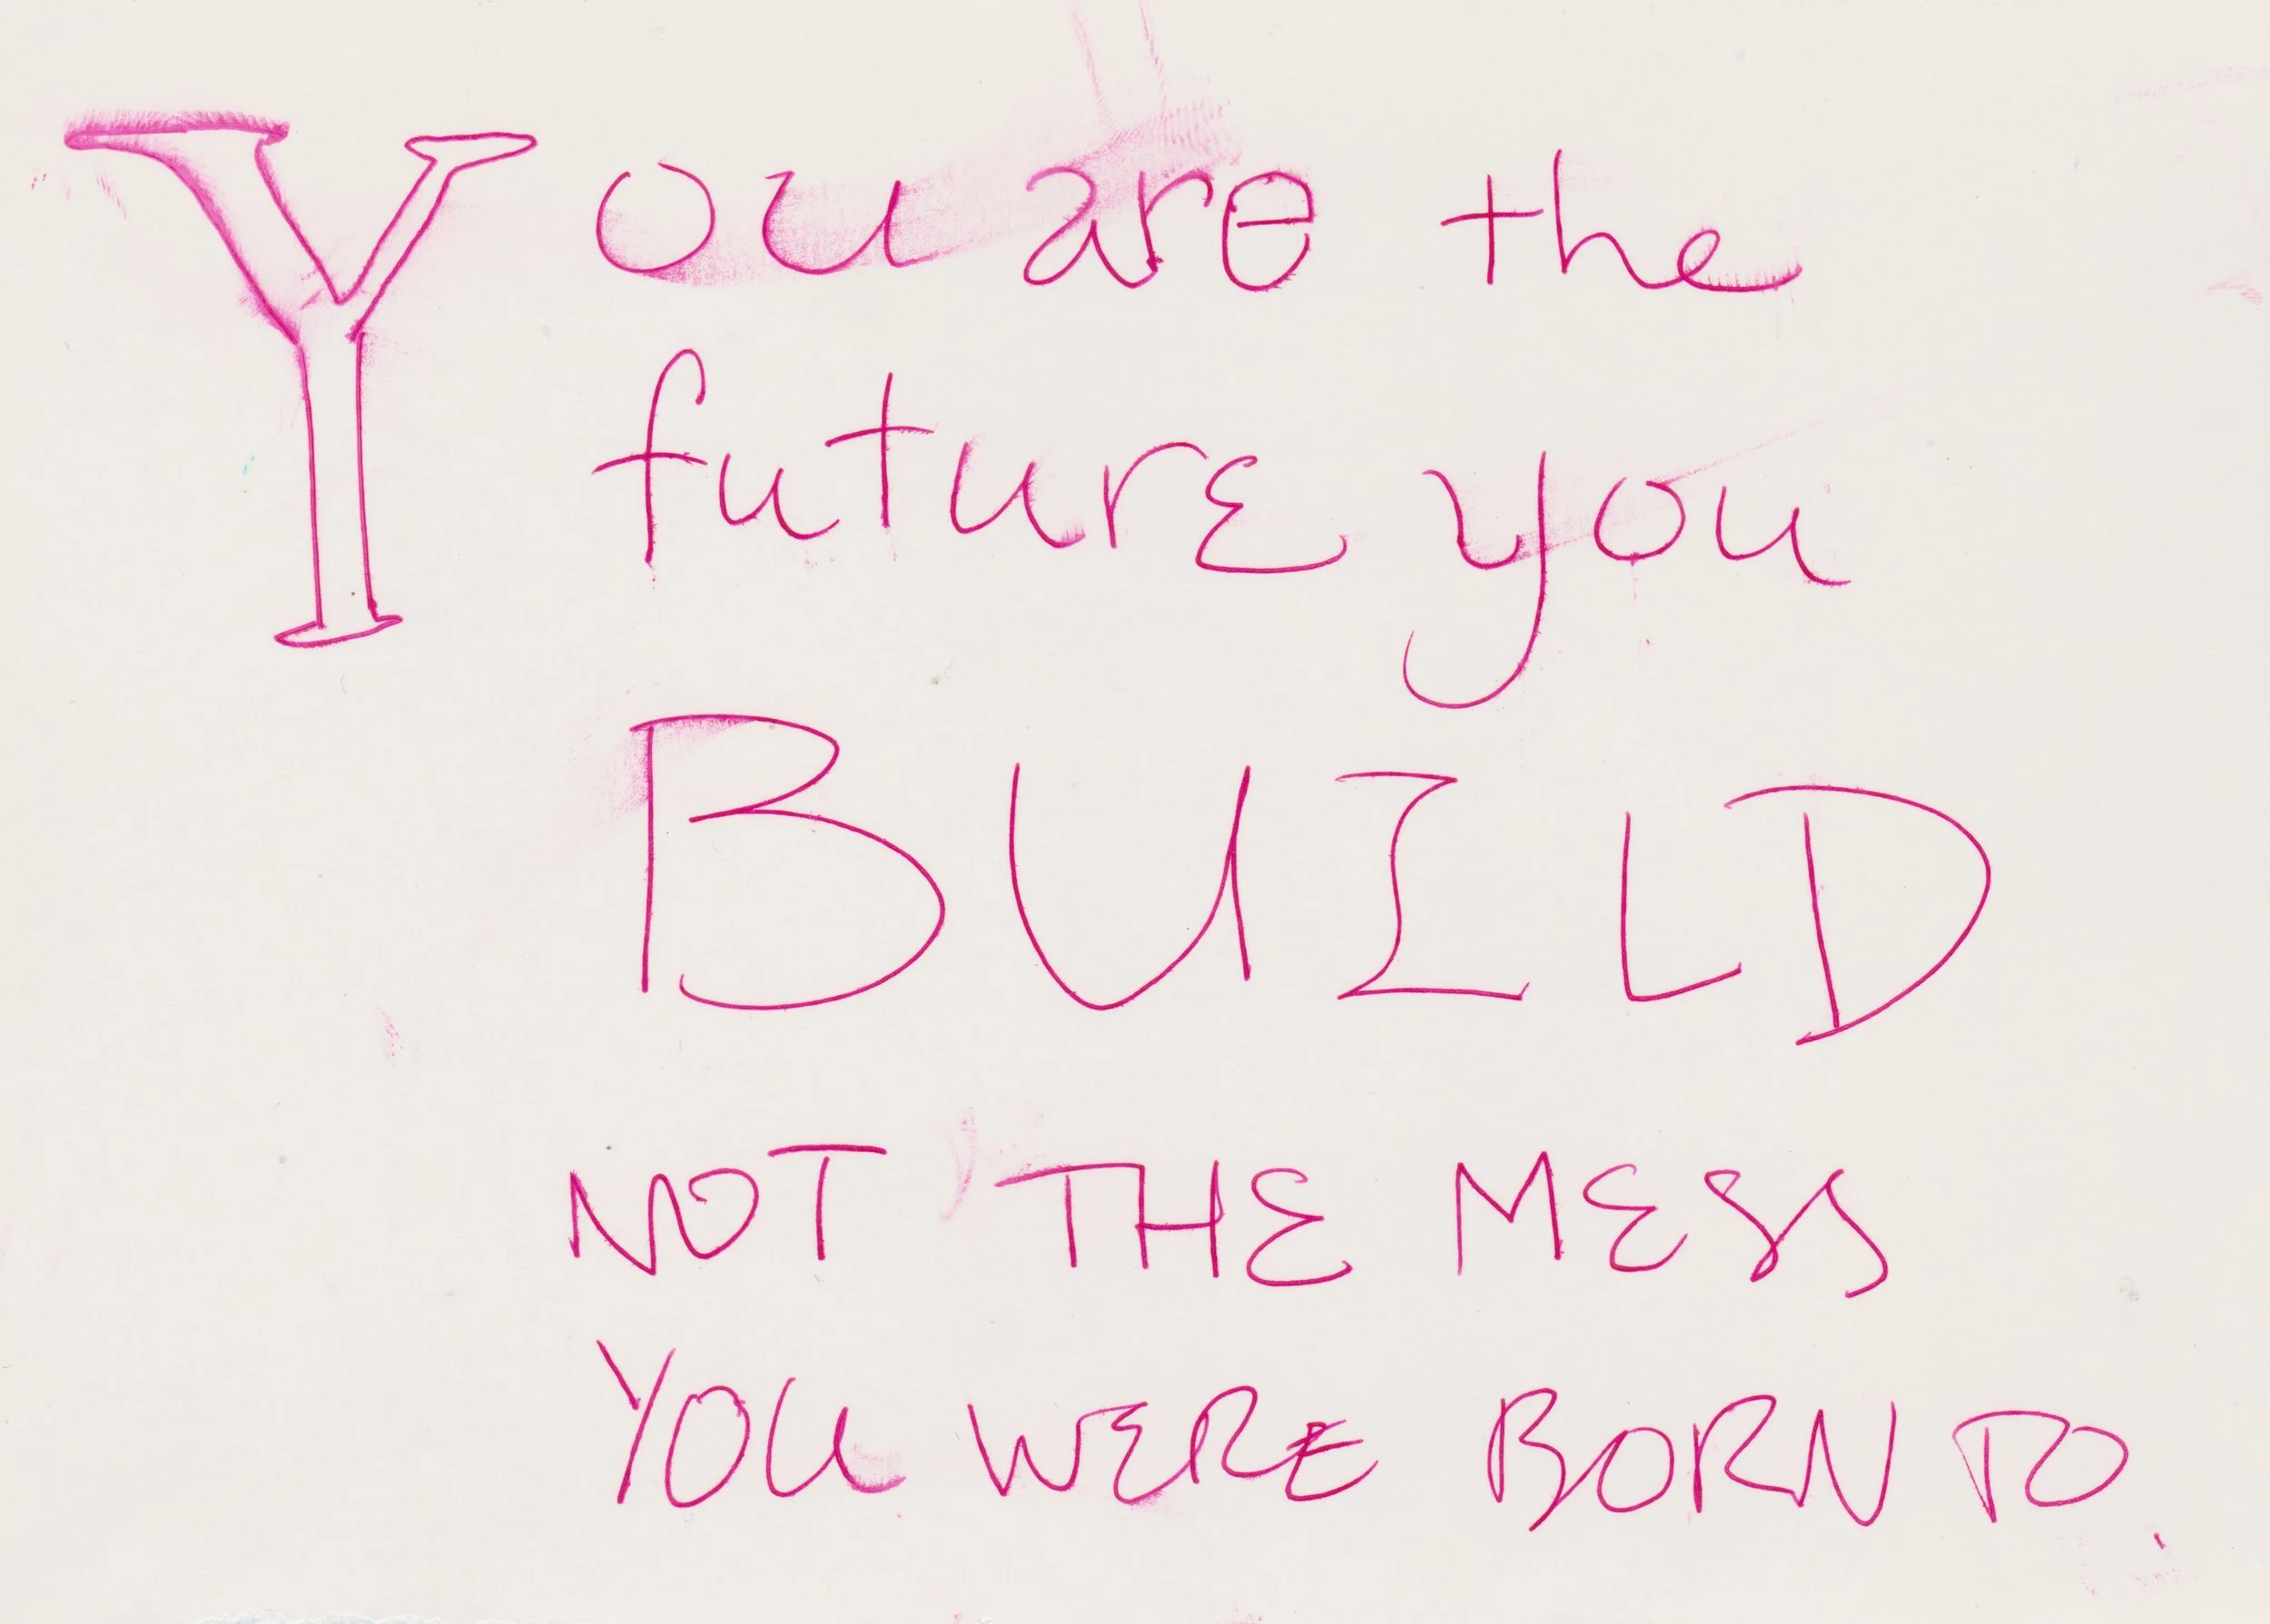 You are the
future you
BUILD
NOT THE MESS
YOU WERE BORN TO.